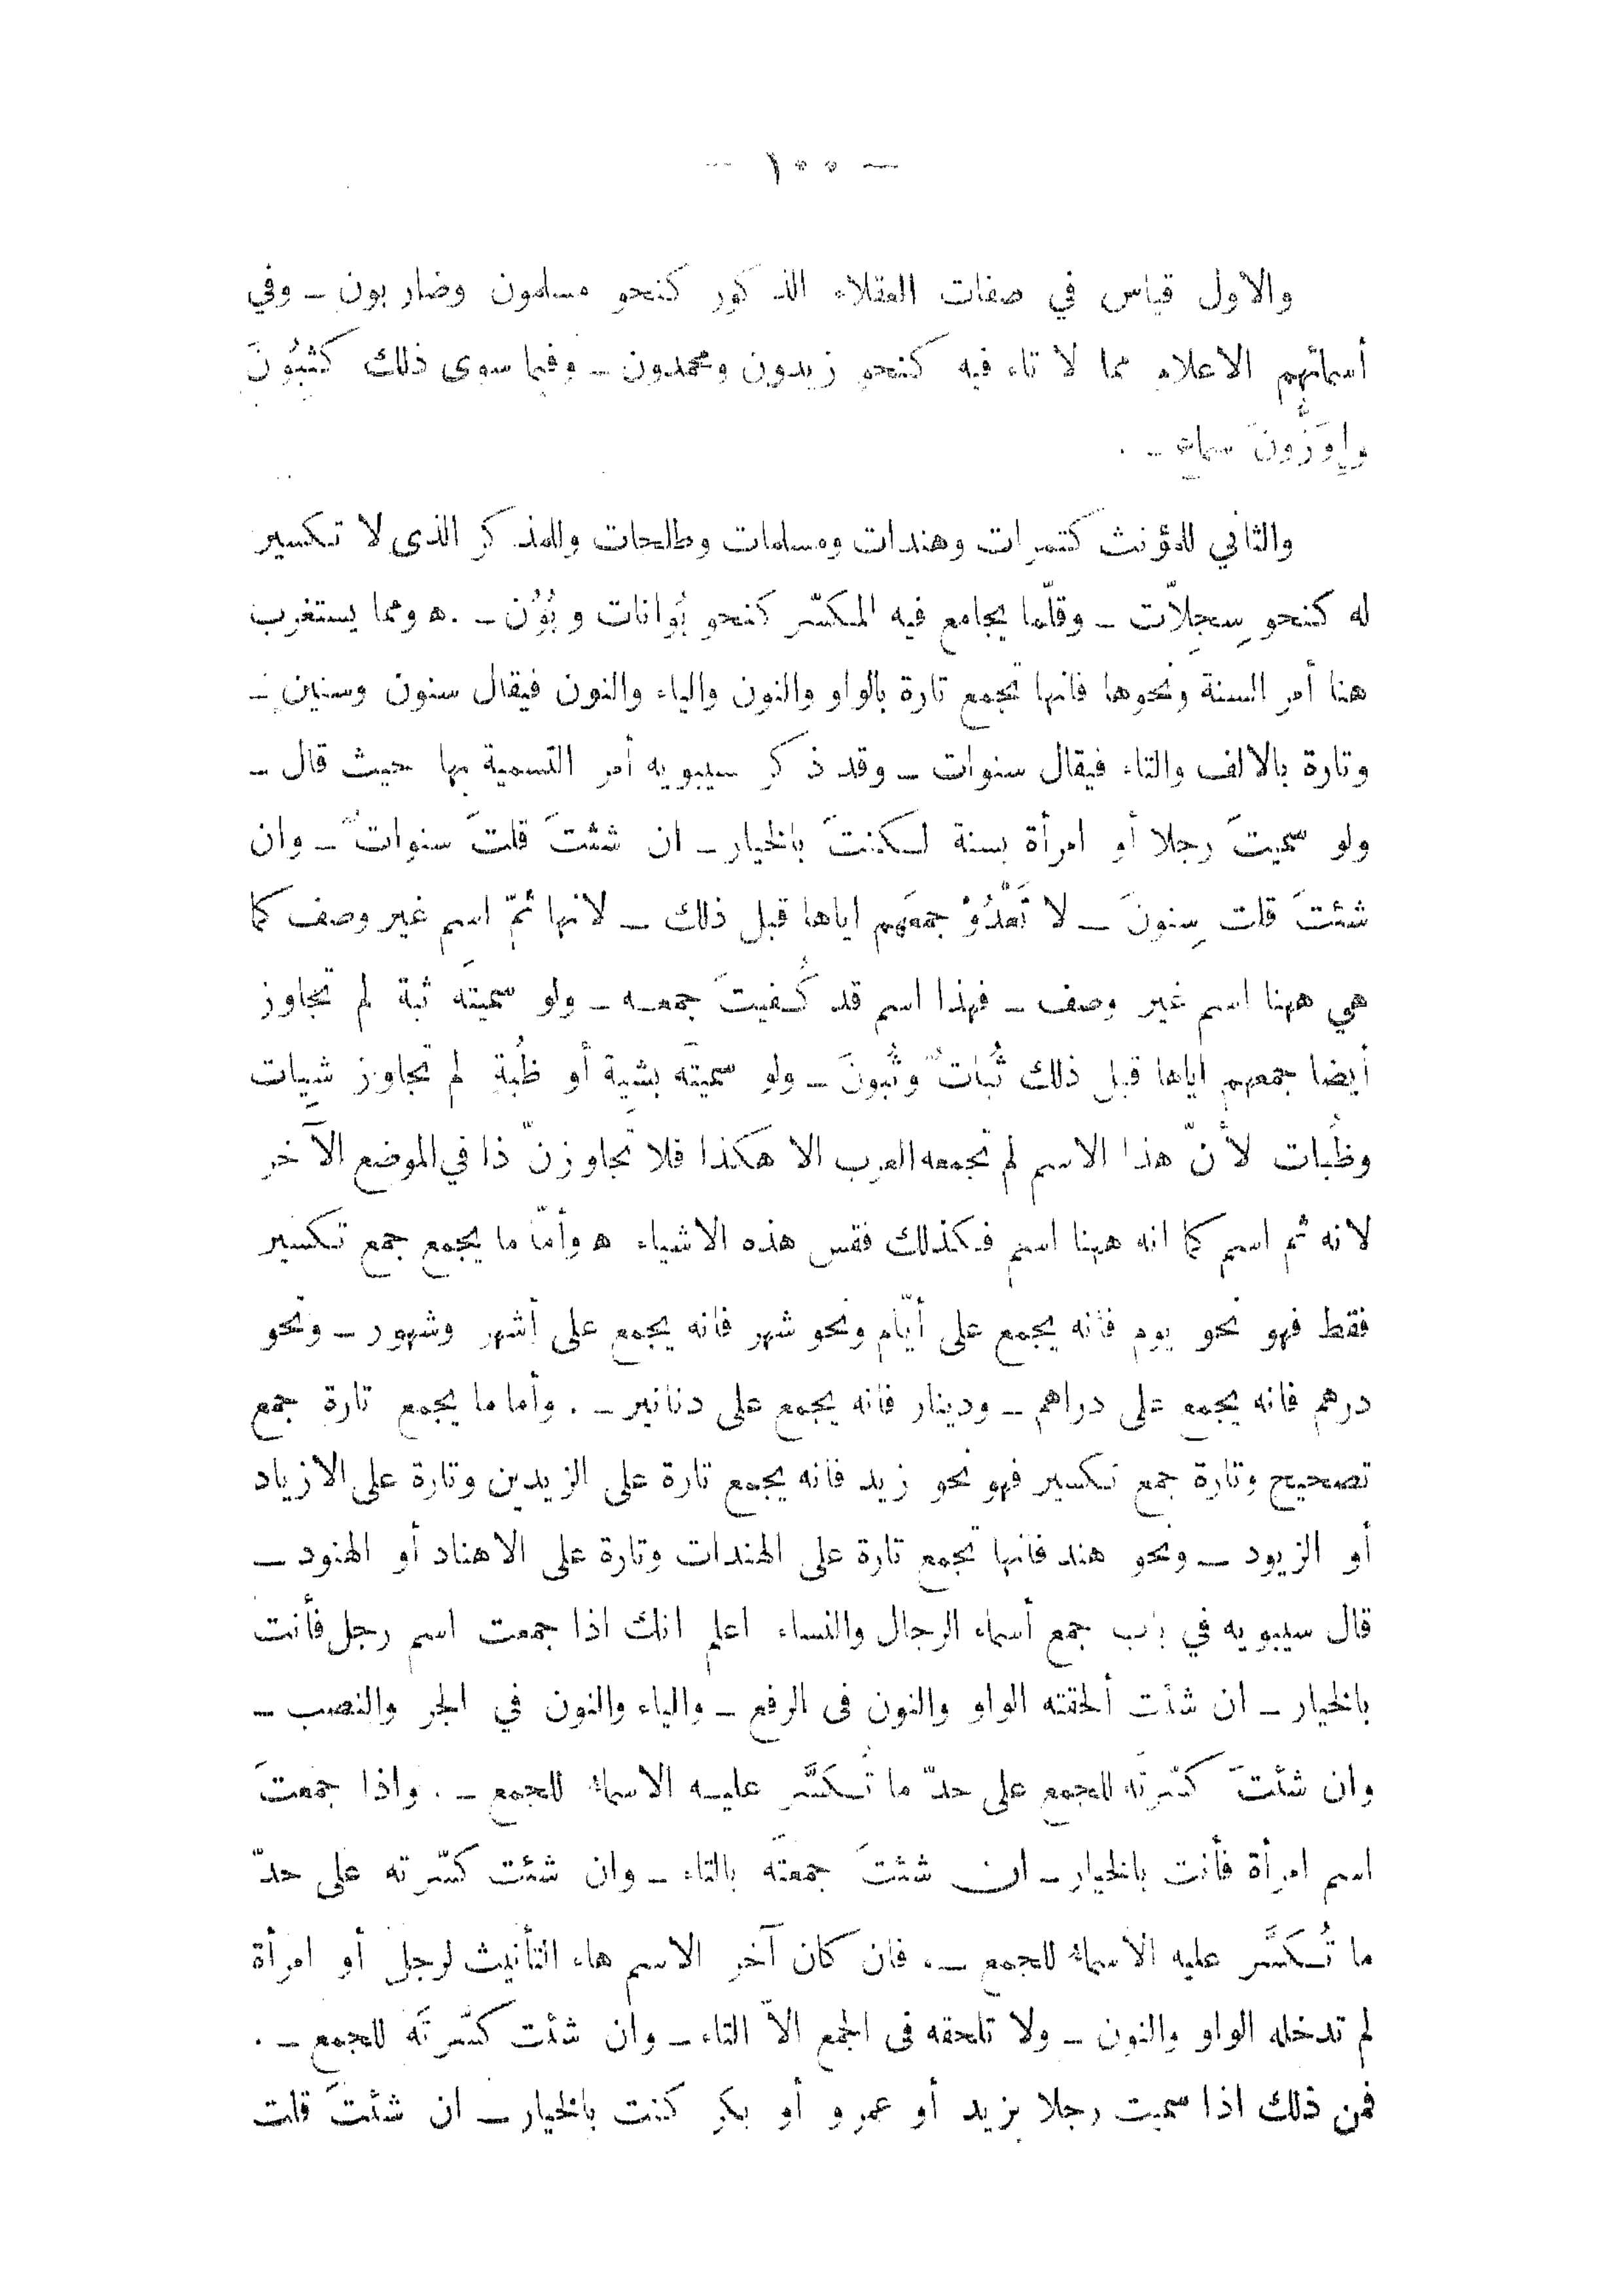 — ١٠٠ —
والاول قياس في صفات العقلاء الذكور كنحو مسلمون وضاربون ـ وفي
أسمائهم الاعلام مما لا تاء فيه كنحو زيدون ومحمدون ـ وفيما سوى ذلك كثُبُونَ
وإوَزُّونَ سماعٌ ـ .
والثاني للمؤنث كتمرات وهندات ومسلمات وطلحات وللمذكر الذى لا تكسير
له كنحو سِجِلّات ـ وقلّما يجامع فيه المكسّر كنحو بُوانات وبُوُن ـ .ه ومما يستغرب
هنا أمر السنة ونحوها فانها تجمع تارة بالواو والنون والياء والنون فيقال سنون وسنين ـ
وتارة بالالف والتاء فيقال سنوات ـ وقد ذكر سيبويه أمر التسمية بها حيث قال ـ
ولو سميتَ رجلا أو امرأة بسنة لكنتَ بالخيار ـ ان شئتَ قلتَ سنواتٌ ـ وان
شئتَ قلت سِنونَ ـ لا تَعْدُوْ جمعَهم اياها قبل ذلك ـ لانها ثَمّ اسم غير وصف كما
هي ههنا اسم غير وصف ـ فهذا اسم قد كُفيتَ جمعه ـ ولو سميتَه ثبة لم تجاوز
أيضا جمعهم اياها قبل ذلك ثُباتٌ وثُبونَ ـ ولو سميتَه بشية أو ظُبةٍ لم تجاوز شيات
وظُبات لأنّ هذا الاسم لم تجمعه العرب الا هكذا فلا تجاوزنّ ذا في الموضع الآخر
لانه ثم اسم كما انه ههنا اسم فكذلك فقس هذه الاشياء ه وأمّا ما يجمع جمع تكسير
فقط فهو نحو يوم فانه يجمع على أيّام ونحو شهر فانه يجمع على أشهر وشهور ـ ونحو
درهم فانه يجمع على دراهم ـ ودينار فانه يجمع على دنانير ـ . وأما ما يجمع تارة جمع
تصحيح وتارة جمع تكسير فهو نحو زيد فانه يجمع تارة على الزيدين وتارة على الازياد
أو الزيود ـ ونحو هند فانها تجمع تارة على الهندات وتارة على الاهناد أو الهنود ـ
قال سيبويه في باب جمع أسماء الرجال والنساء اعلم انك اذا جمعت اسم رجل فأنت
بالخيار ـ ان شئت ألحقته الواو والنون فى الرفع ـ والياء والنون في الجر والنصب ـ
وان شئتَ كسّرتَه للجمع على حدّ ما تُكسَّر عليه الاسماءُ للجمع ـ . واذا جمعتَ
اسم امرأة فأنت بالخيار ـ ان شئتَ جمعتَه بالتاء ـ وان شئت كسّرته على حدّ
ما تُكَسَّر عليه الاسماءُ للجمع ـ. فان كان آخر الاسم هاء التأنيث لرجل أو امرأة
لم تدخله الواو والنون ـ ولا تلحقه فى الجمع الاّ التاء ـ وان شئت كسّرتَه للجمع ـ .
فمن ذلك اذا سميت رجلا بزيد أو عمرو أو بكر كنت بالخيار ـ ان شئتَ قلت